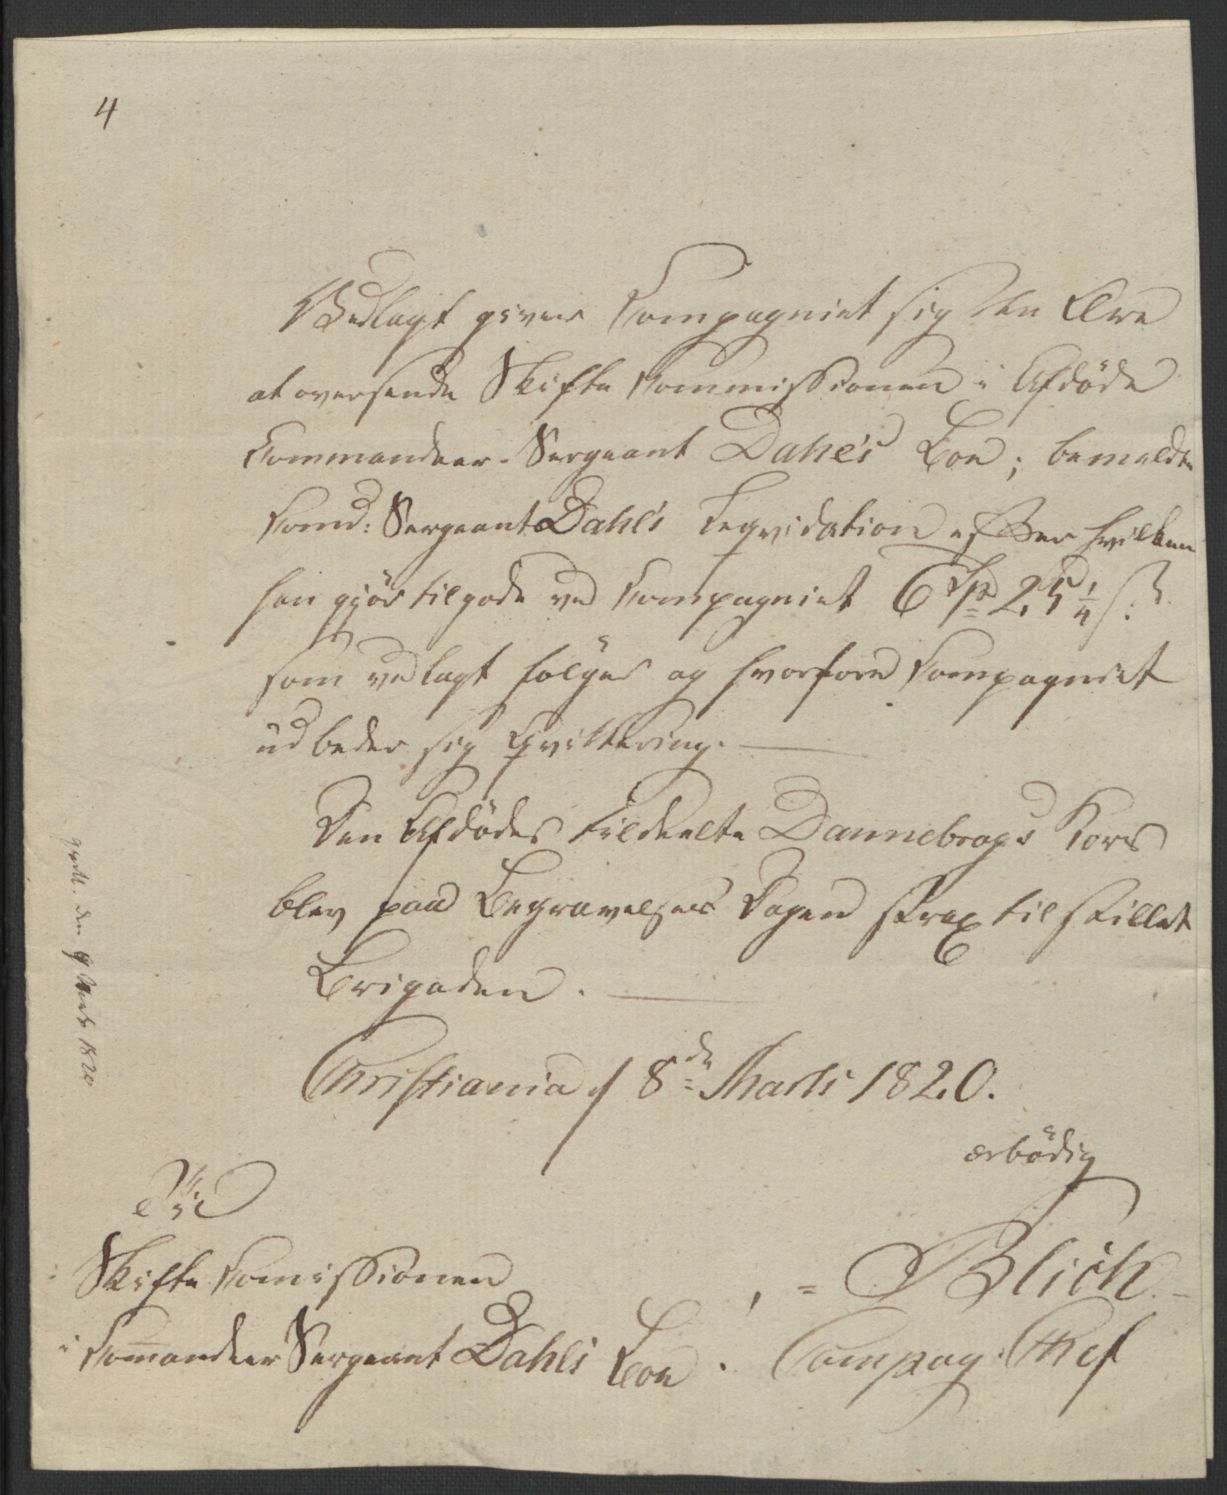 4
Vedlagt giver Compagniet sig den Ære
at oversende Skifte Kommissionen i Afdöde
Commandeer-Sergeant Dahl's Boe; bemeldte
Comd: Sergeant Dahl's Liqvidation efter hvilken
han gjör tilgode ved Compagniet 6 Spd 25 1/4 s.
som vedlagt fölger og hvorfore Compagniet
udbeder sig Qvittering. —
Den Afdödes tildeelte Dannebrogs Kors
blev paa Begravelses Dagen strax tilstillet
Brigaden. —
Christiania d 8de Marts 1820.
ærbödig
Til
Skifte Comissionen
i Com̅andeer Sergeant Dahls Boe.
Blich.
Compag. Chef
den 9 Marts 1820